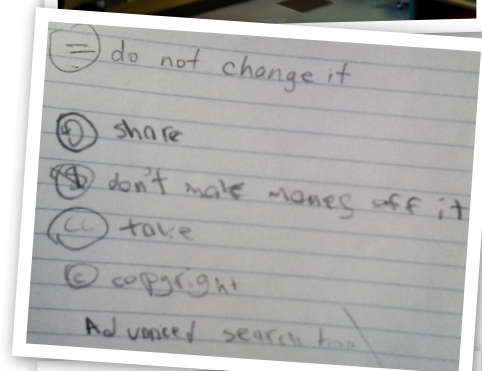 = do not change it
share
$ don't make money off it
cc take
© copyright
Advanced search